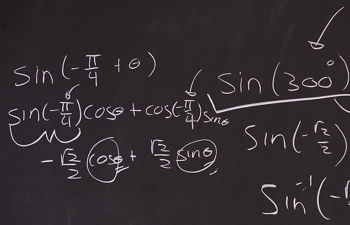 sin(-π/4 + θ)
sin(-π/4)cosθ + cos(-π/4)sinθ
-√2/2 cosθ + √2/2 sinθ
sin(300°)
sin(-√2/2)
sin⁻¹(-√